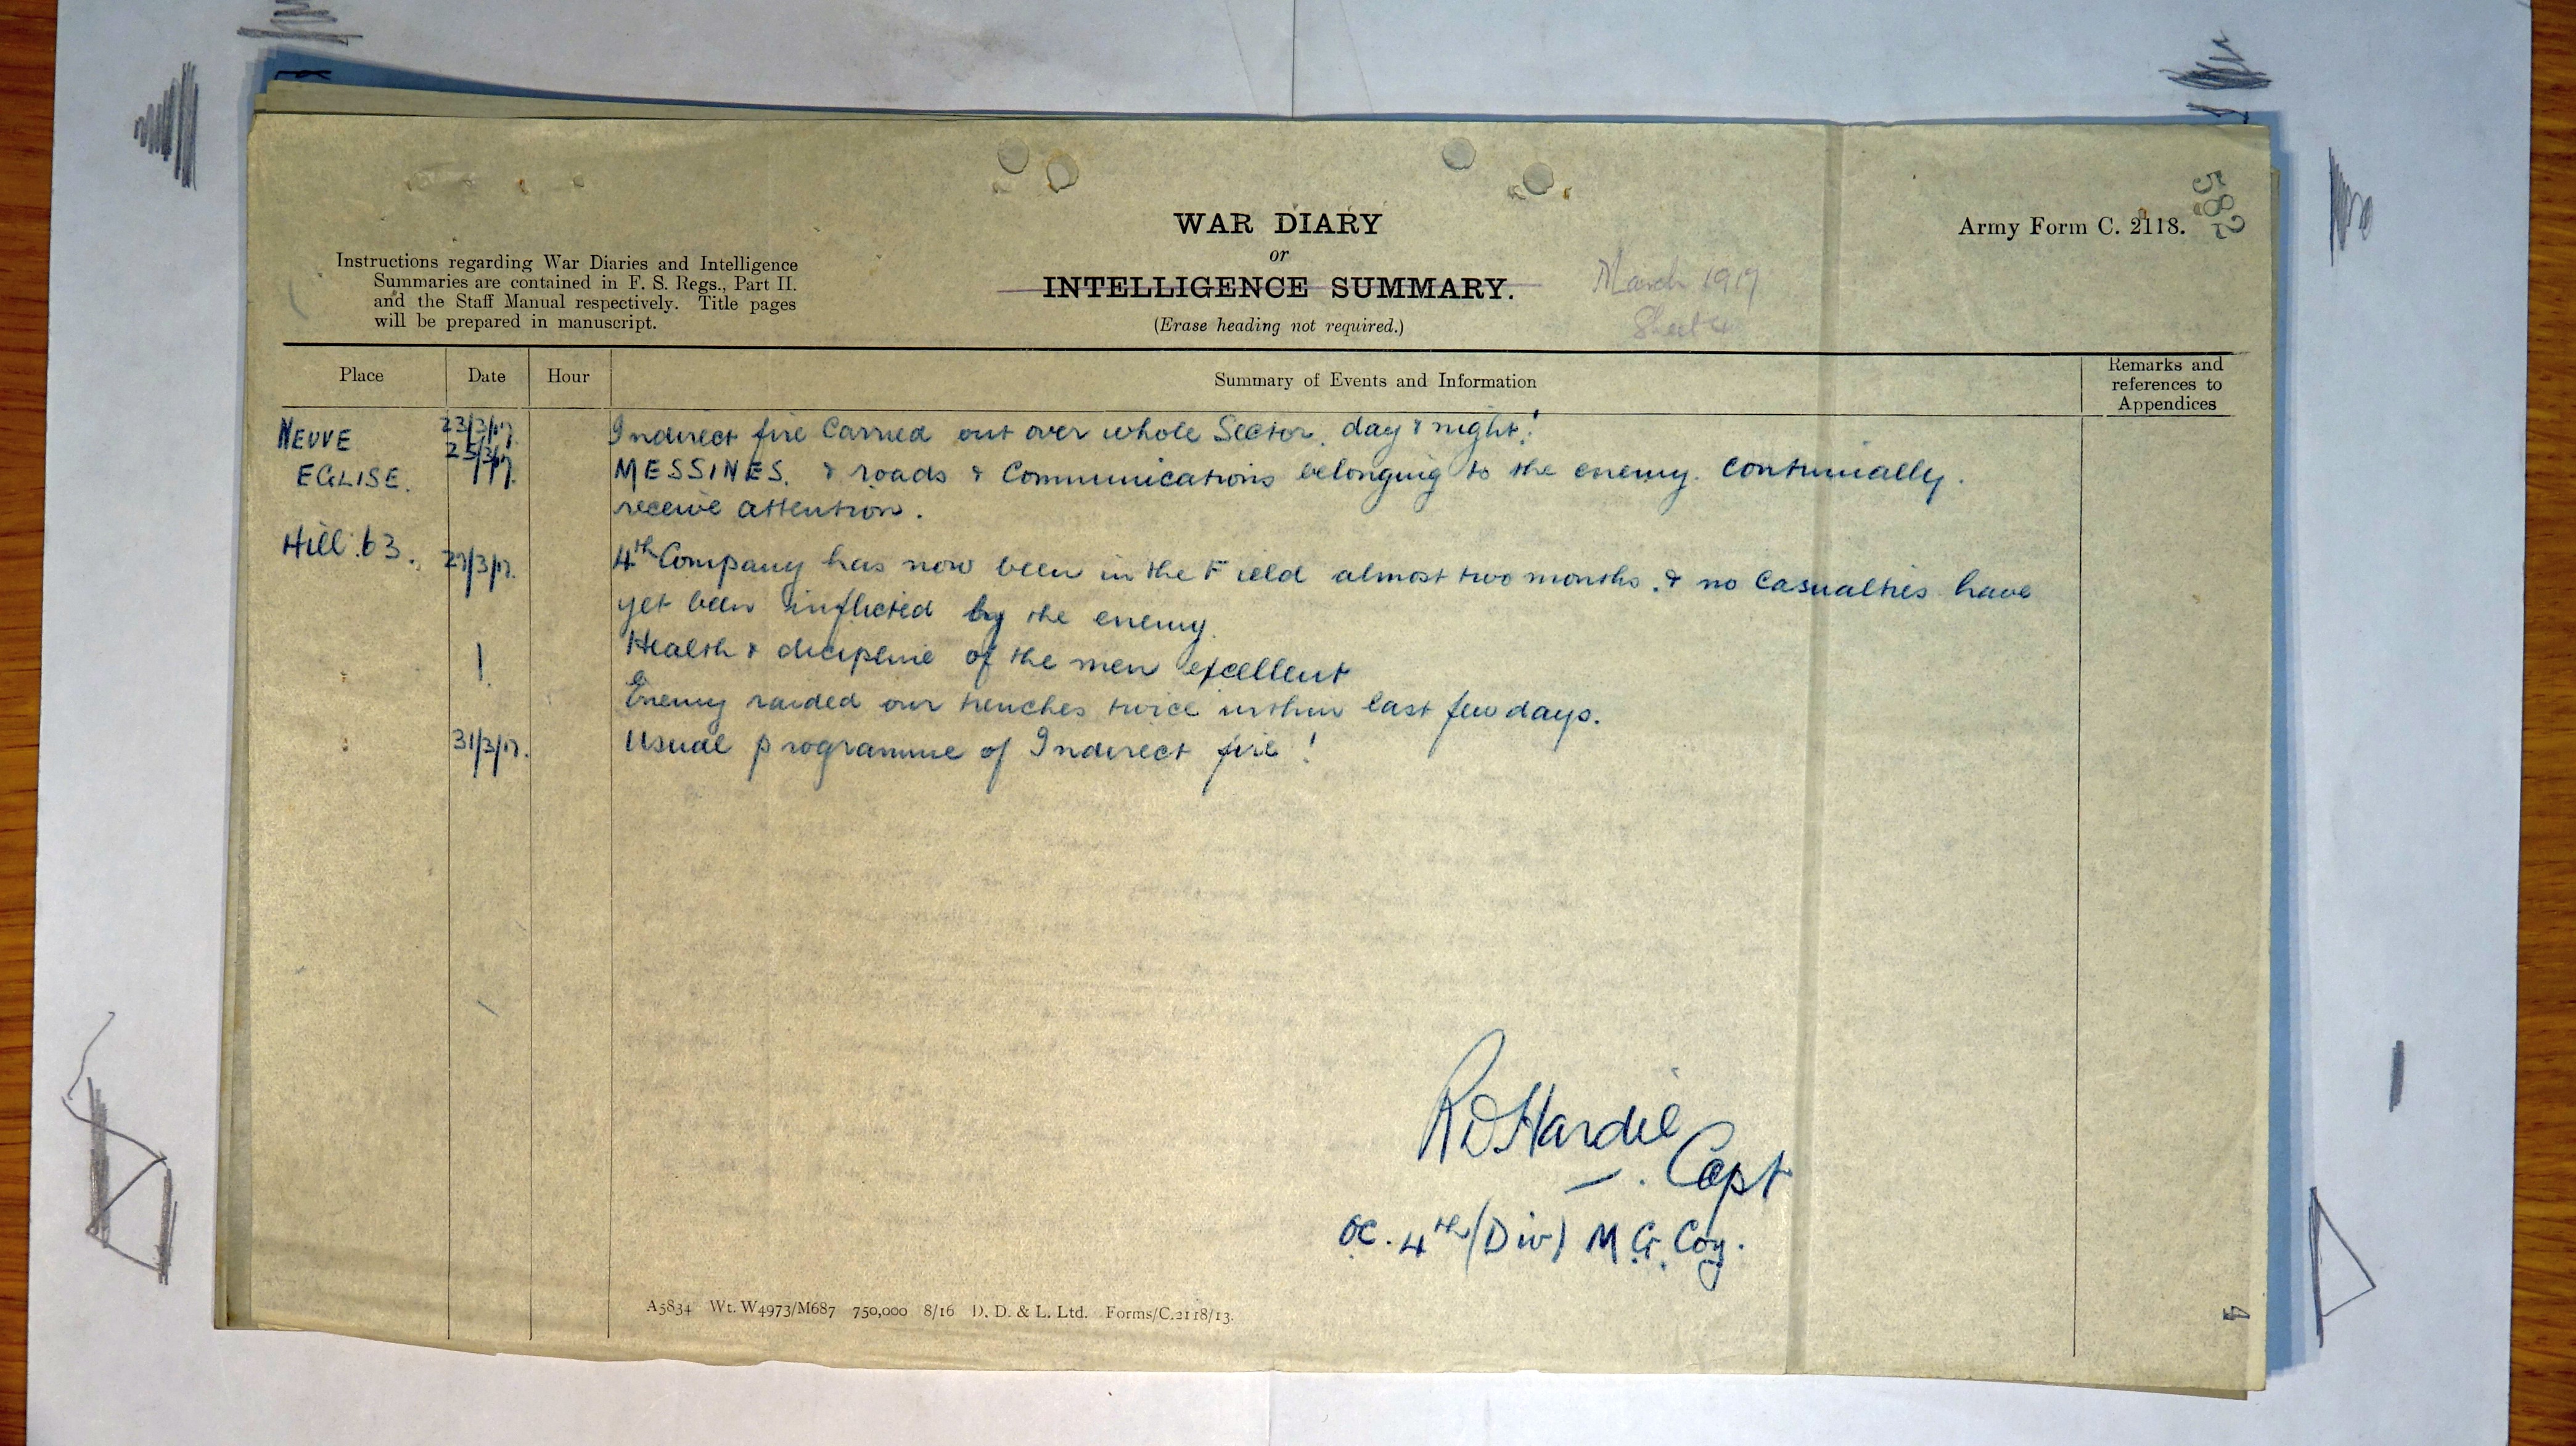 582
WAR DIARY
or
INTELLIGENCE SUMMARY.
(Erase heading not required.)
Army Form C. 2118.
Instructions regarding War Diaries and Intelligence
Summaries are contained in F. S. Regs., Part II.
and the Staff Manual respectively. Title pages
will be prepared in manuscript.
March 1917
Sheet 4
Place Date Hour Summary of Events and Information Remarks and
references to
Appendices
NEUVE 23/3/17. Indirect fire carried out over whole Sector, day & night!
EGLISE. 25/3/17. MESSINES. & roads & Communications belonging to the enemy. continually.
receive attention.
Hill 63. 27/3/17. 4th Company has now been in the Field almost two months. & no casualties have
yet been inflicted by the enemy.
Health & dicipline of the men excellent
Enemy raided our trenches twice within last few days.
31/3/17. Usual programme of Indirect fire!
RDHardie
Capt
OC. 4th (Div) M.G. Coy.
A5834 Wt. W4973/M687 750,000 8/16 D. D. & L. Ltd. Forms/C.2118/13.
4